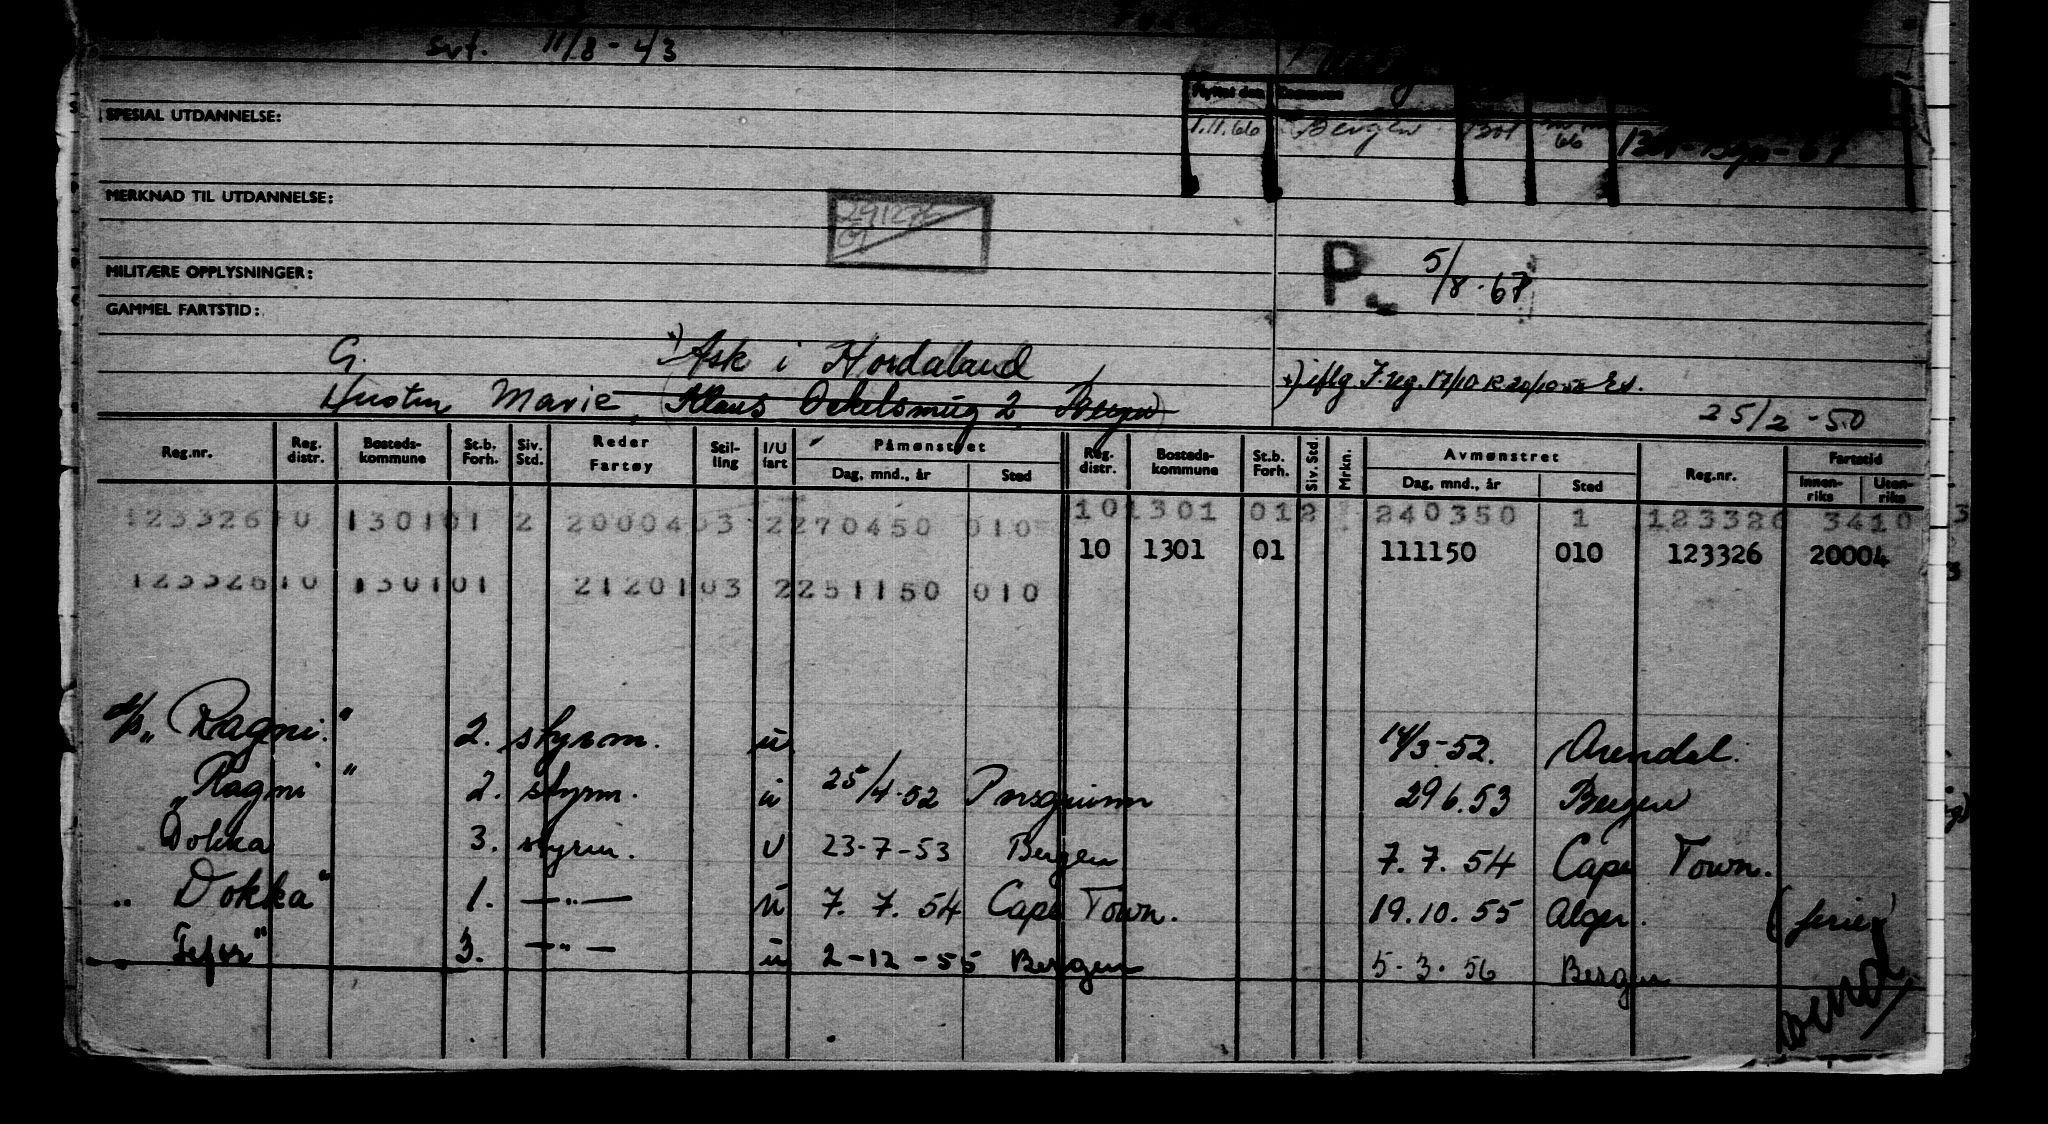 svt. 11/8 - 43
Flyttet den
1.11.66 Bergen 1301 66 1301-Bgn-67
SPESIAL UTDANNELSE:
MERKNAD TIL UTDANNELSE:
MILITÆRE OPPLYSNINGER:
P. 5/8-67
GAMMEL FARTSTID:
G. *) Ask i Hordaland
Hustru Marie, (Klaus Ockelsmug 2 Bergen)
25/2 - 50
Reg.nr. Reg. distr. Bosteds-kommune St.b. Forh. Siv. Std. Reder Fartøy Stil-ling I/U fart Påmønstret Dag, mnd., år Sted Reg. distr. Bosteds-kommune St.b. Forh. Siv. Std. Mrkn. Avmønstret Dag, mnd., år Sted Reg.nr. Fartstid Innen-riks Uten-riks
123326 10 1301 01 2 20004 03 2 270450 010 10 1301 01 2 240350 1 123326 3410 3
10 1301 01 111150 010 123326 20004
123326 10 1301 01 21201 03 2 251150 010
d/s „Ragni" 2. styrm. u 14/3-52. Arendal.
„Ragni" 2. styrm. u 25/4-52 Porsgrunn 29.6.53 Bergen
Dokka 3. styrm. u 23-7-53 Bergen 7.7.54 Cape Town.
„ Dokka" 1. —"— u 7.7.54 Cape Town. 19.10.55 Alger. (ferie)
„ Tefer" 3. —"— u 2-12-55 Bergen 5-3.56 Bergen
vend